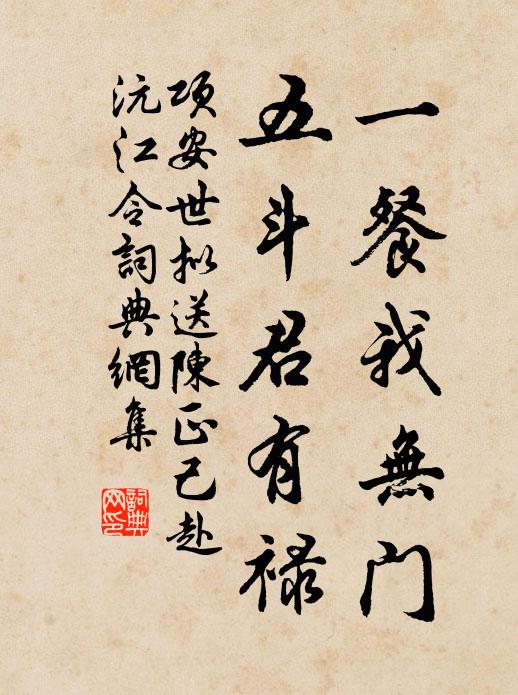 一餐我無門
五斗君有祿
項安世拟送陳正己赴
沅江令詞典網集
詞典
网印